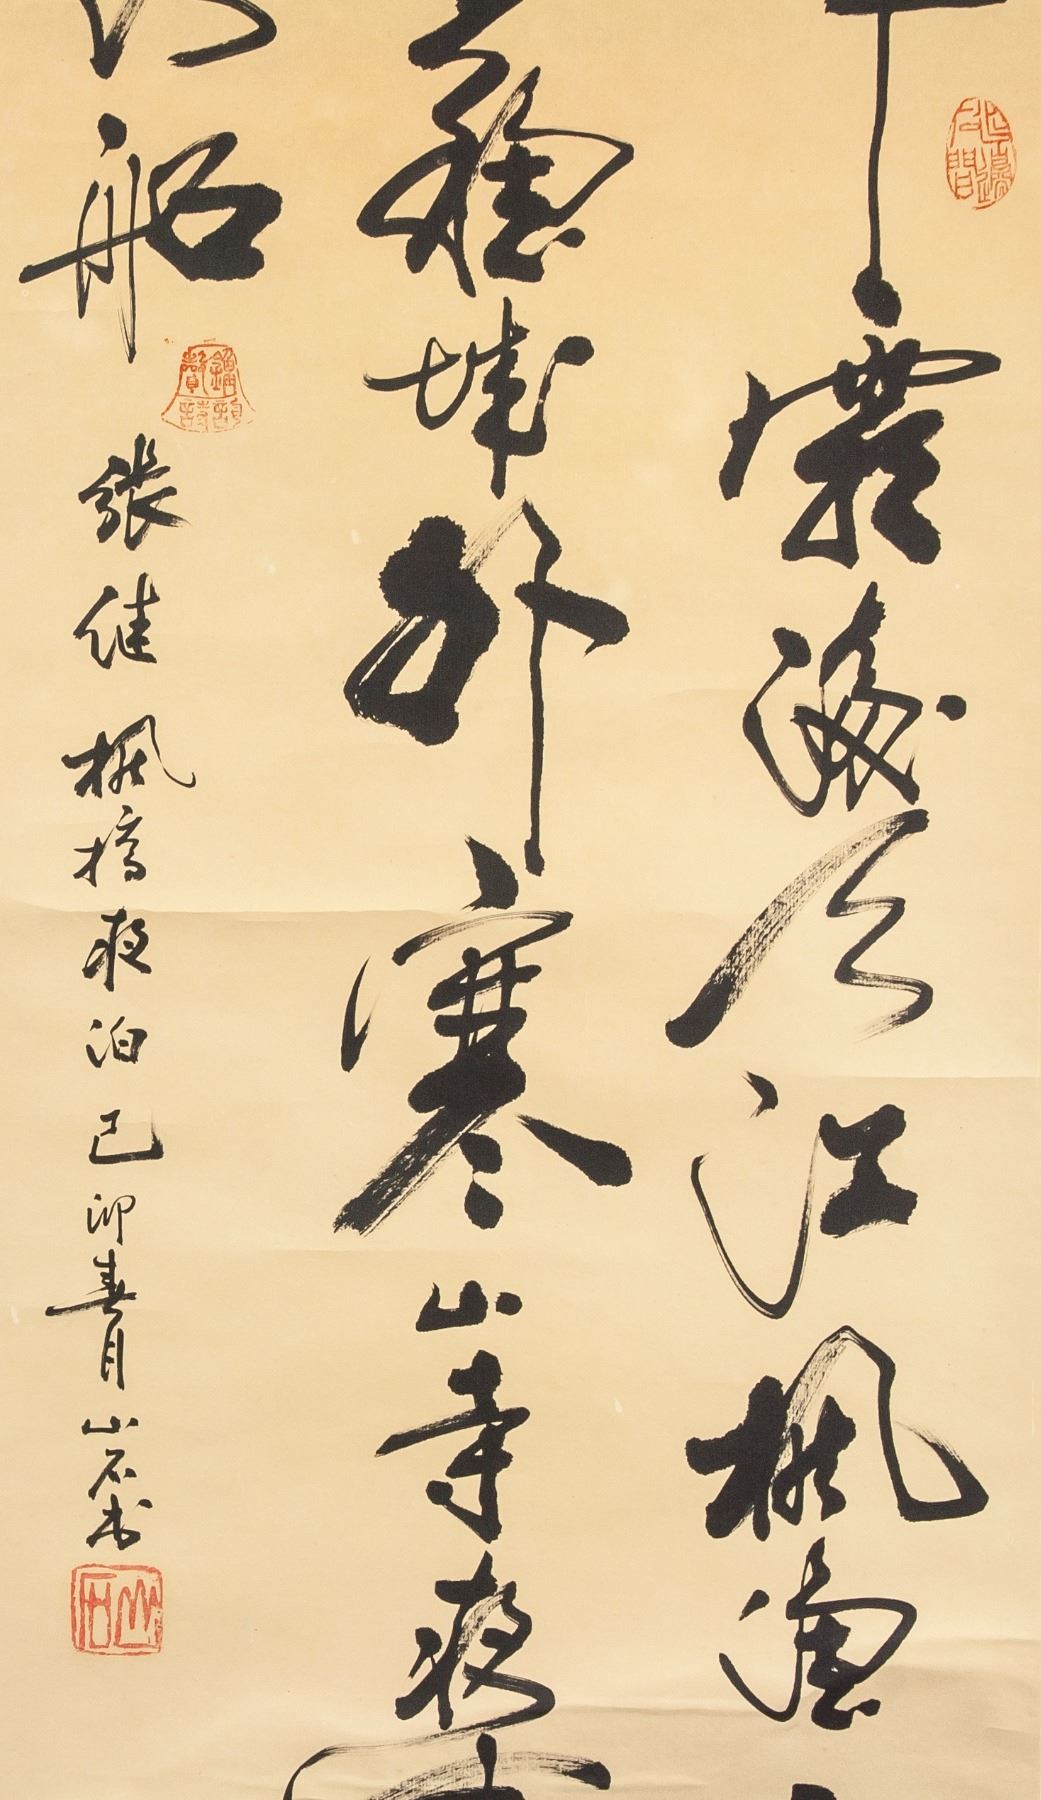 霜滿天江楓漁
蘇城外寒山寺夜
船
張继楓橋夜泊己卯春月山石书
山石